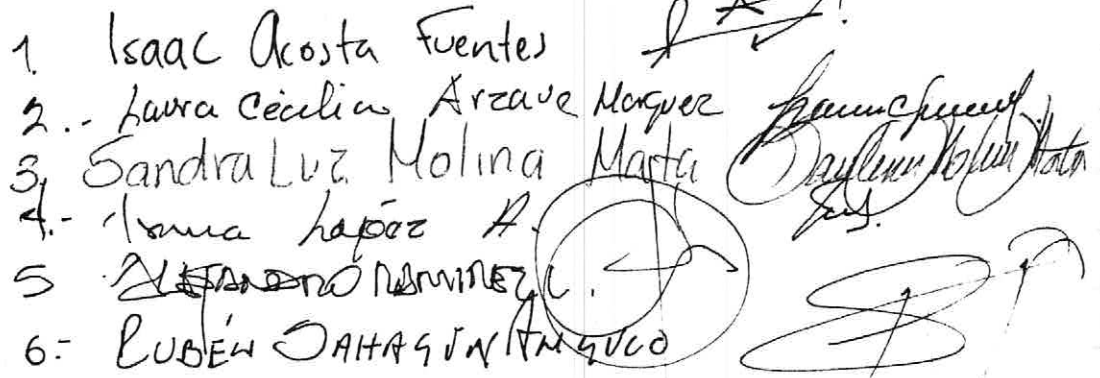 1. Isaac Acosta Fuentes
2.- Laura Cecilia Arzave Marquez
3, Sandra Luz Molina Mata
4.- Irma López A.
5 ALEJANDRO RAMIREZ C.
6.- RUBÉN SAHAGÚN ANGULO